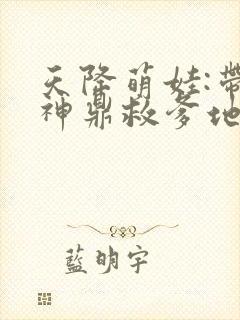 天降萌娃:帶
神鼎救爹地
藍明宇